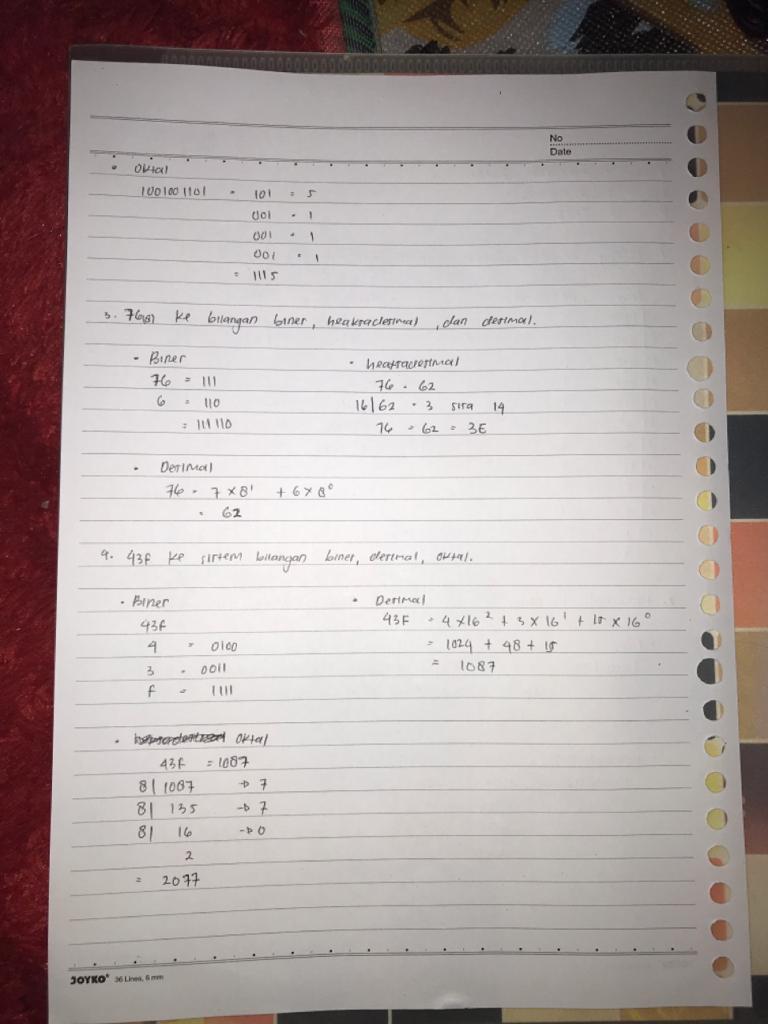 No
Date
• Oktal
1001001101 = 101 = 5
001 = 1
001 = 1
001 = 1
= 1115
3. 76(8) ke bilangan biner, heaksadesimal, dan desimal.
• Biner
76 = 111
6 = 110
= 111 110
• heaksadesimal
76 = 62
16|62 = 3 sisa 14
76 = 62 = 3E
• Desimal
76 = 7 × 8¹ + 6 × 8⁰
= 62
4. 43f ke sistem bilangan biner, desimal, oktal.
• Biner
43f
4 = 0100
3 = 0011
f = 1111
• Desimal
43F = 4 × 16² + 3 × 16¹ + 15 × 16⁰
= 1024 + 48 + 15
= 1087
• Oktal
43f = 1087
8| 1087 → 7
8| 135 → 7
8| 16 → 0
2
= 2077
JOYKO 36 Lines, 6 mm